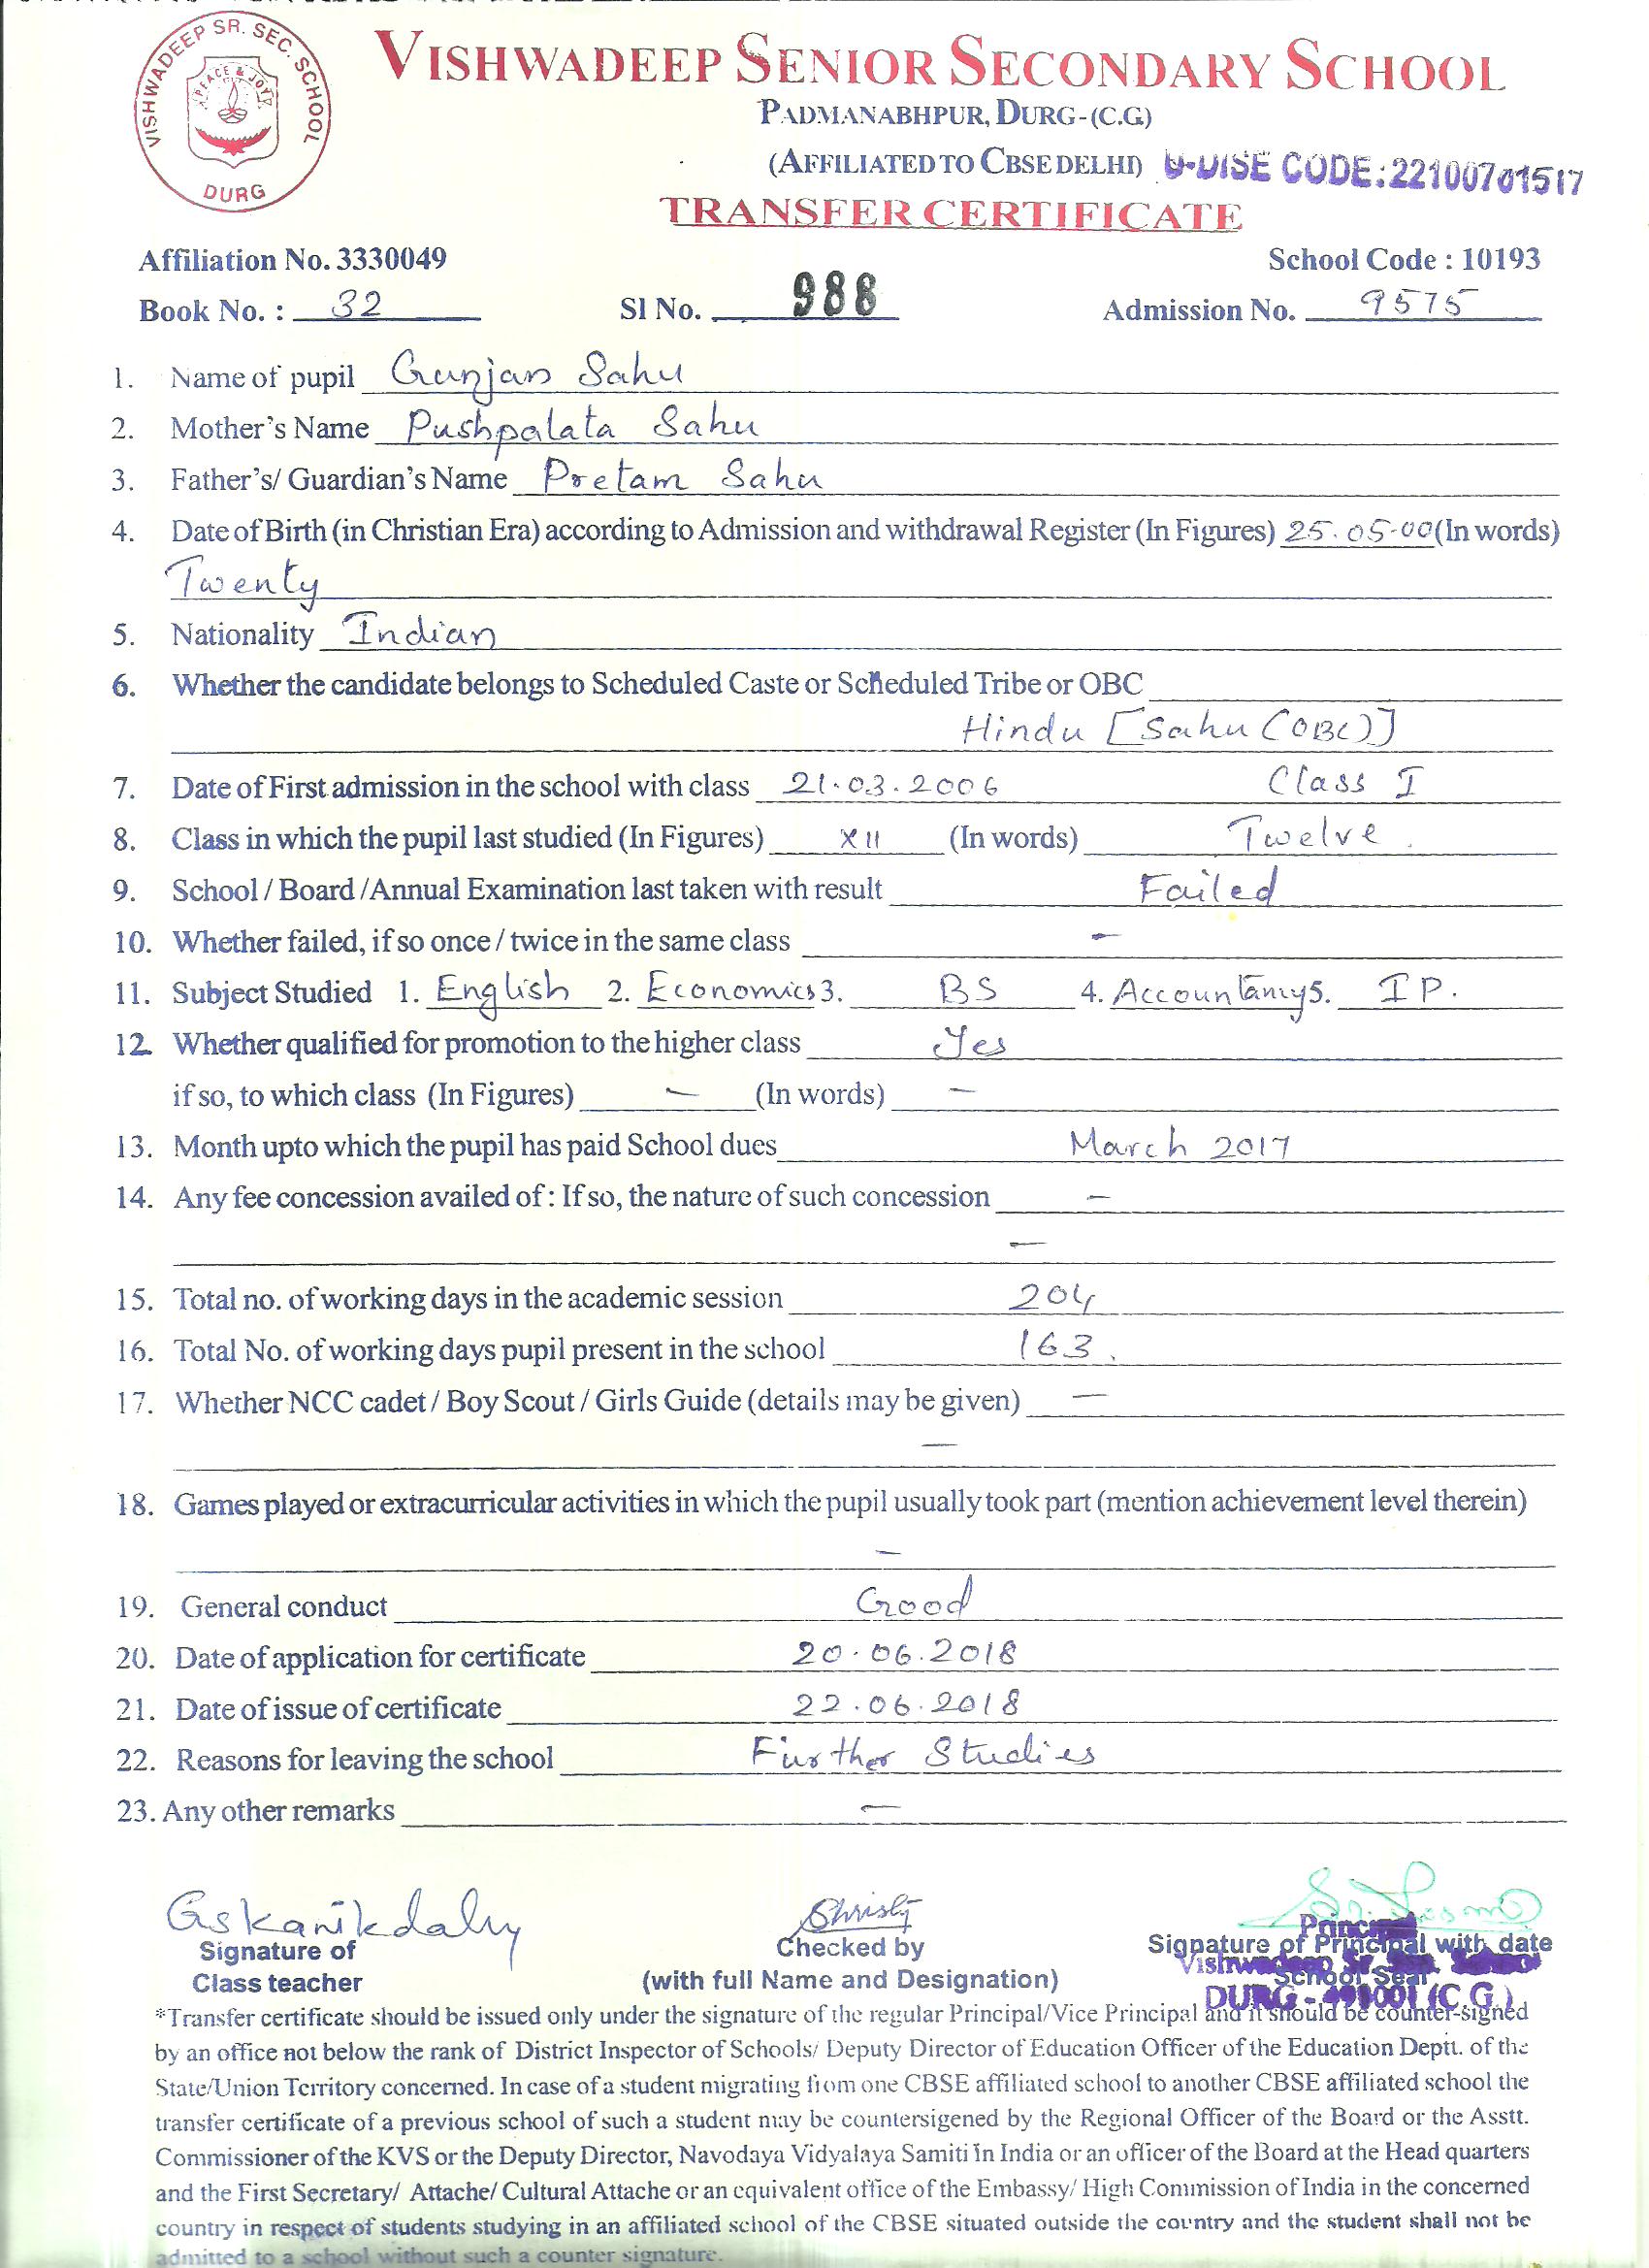 VISHWADEEP SR. SEC. SCHOOL
PEACE & JOY
DURG
VISHWADEEP SENIOR SECONDARY SCHOOL
PADMANABHPUR, DURG-(C.G)
(AFFILIATED TO CBSE DELHI) U-DISE CODE:22100701517
TRANSFER CERTIFICATE
Affiliation No. 3330049 School Code : 10193
Book No. : 32 Sl No. 988 Admission No. 9575
1. Name of pupil Gunjan Sahu
2. Mother's Name Pushpalata Sahu
3. Father's/ Guardian's Name Pretam Sahu
4. Date of Birth (in Christian Era) according to Admission and withdrawal Register (In Figures) 25.05-00 (In words)
Twenty
5. Nationality Indian
6. Whether the candidate belongs to Scheduled Caste or Scheduled Tribe or OBC
Hindu [Sahu (OBC)]
7. Date of First admission in the school with class 21.03.2006 Class I
8. Class in which the pupil last studied (In Figures) XII (In words) Twelve.
9. School / Board /Annual Examination last taken with result Failed
10. Whether failed, if so once / twice in the same class –
11. Subject Studied 1. English 2. Economics 3. BS 4. Accountancy 5. IP.
12. Whether qualified for promotion to the higher class Yes
if so, to which class (In Figures) – (In words) –
13. Month upto which the pupil has paid School dues March 2017
14. Any fee concession availed of : If so, the nature of such concession –
–
15. Total no. of working days in the academic session 204
16. Total No. of working days pupil present in the school 163.
17. Whether NCC cadet / Boy Scout / Girls Guide (details may be given) –
–
18. Games played or extracurricular activities in which the pupil usually took part (mention achievement level therein)
–
19. General conduct Good
20. Date of application for certificate 20.06.2018
21. Date of issue of certificate 22.06.2018
22. Reasons for leaving the school Further Studies
23. Any other remarks –
Christy
Principal
Signature of Checked by Signature of Principal with date
Vishwadeep Sr. Sec. School
Class teacher (with full Name and Designation) School Seal
DURG - 491001 (C.G.)
*Transfer certificate should be issued only under the signature of the regular Principal/Vice Principal and it should be counter-signed
by an office not below the rank of District Inspector of Schools/ Deputy Director of Education Officer of the Education Deptt. of the
State/Union Territory concerned. In case of a student migrating from one CBSE affiliated school to another CBSE affiliated school the
transfer certificate of a previous school of such a student may be countersigened by the Regional Officer of the Board or the Asstt.
Commissioner of the KVS or the Deputy Director, Navodaya Vidyalaya Samiti in India or an officer of the Board at the Head quarters
and the First Secretary/ Attache/ Cultural Attache or an equivalent office of the Embassy/ High Commission of India in the concerned
country in respect of students studying in an affiliated school of the CBSE situated outside the country and the student shall not be
admitted to a school without such a counter signature.